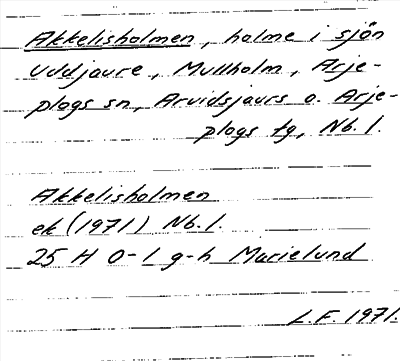 Akkelisholmen, holme i sjön
Uddjaure, Mullholm, Arje-
plogs sn, Arvidsjaurs o. Arje-
plogs tg, Nb. l.
Akkelisholmen
ek (1971) Nb. l.
25 H 0-1 g-h Marielund
L.F. 1971.